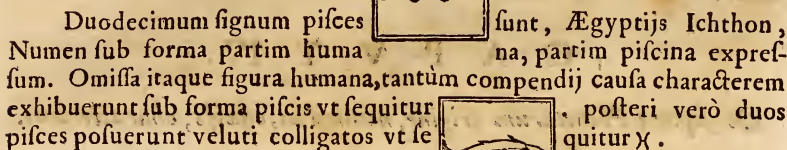 Duodecimum ſignum piſces ſunt, Ægyptijs Ichthon,
Numen ſub forma partim huma na, partim piſcina expreſ-
ſum. Omiſſa itaque figura humana, tantùm compendij cauſa characterem
exhibuerunt ſub forma piſcis vt ſequitur . poſteri verò duos
piſces poſuerunt veluti colligatos vt ſe quitur ♓.